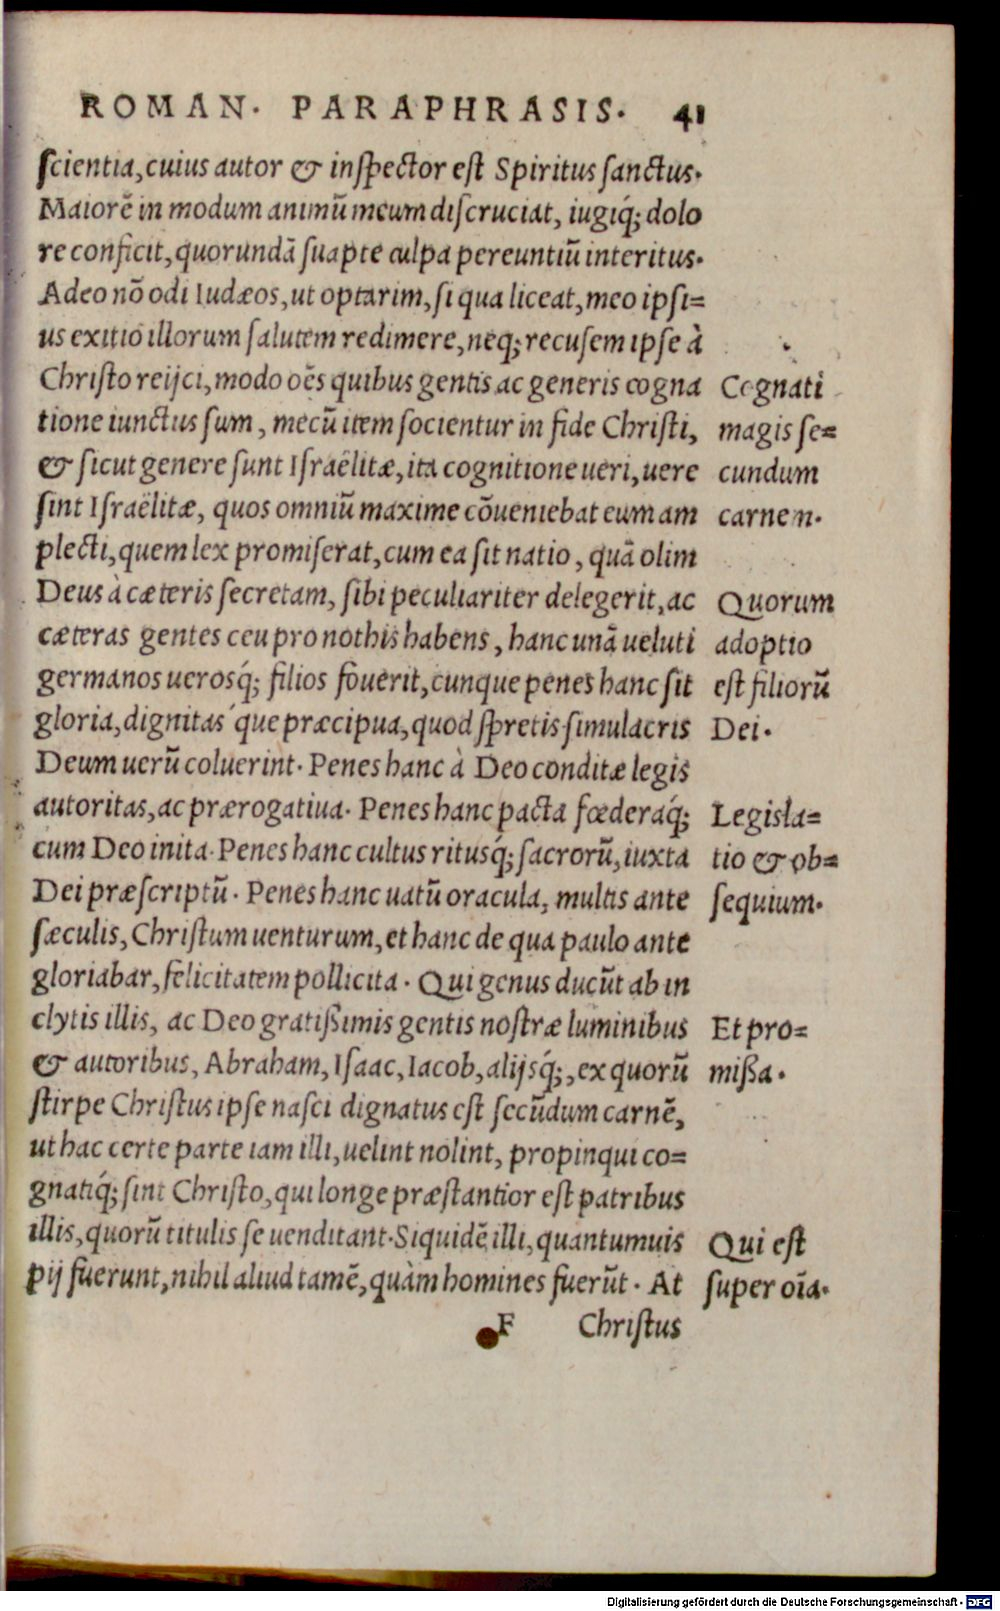 ROMAN. PARAPHRASIS. 41
ſcientia, cuius autor & inſpector eſt Spiritus ſanctus.
Maiorē in modum animū meum diſcruciat, iugiq́; dolo
re conficit, quorundā ſuapte culpa pereuntiū interitus.
Adeo nō odi Iudæos, ut optarim, ſi qua liceat, meo ipſi=
us exitio illorum ſalutem redimere, neq; recuſem ipſe à
Chriſto reijci, modo oēs quibus gentis ac generis cogna
tione iunctus ſum, mecū item ſocientur in fide Chriſti,
& ſicut genere ſunt Iſraëlitæ, ita cognitione ueri, uere
ſint Iſraëlitæ, quos omniū maxime cōueniebat eum am
plecti, quem lex promiſerat, cum ea ſit natio, quā olim
Deus à cæteris ſecretam, ſibi peculiariter delegerit, ac
cæteras gentes ceu pro nothis habens, hanc unā ueluti
germanos uerosq́; filios fouerit, cunque penes hanc ſit
gloria, dignitas'que præcipua, quod ſpretis ſimulacris
Deum uerū coluerint. Penes hanc à Deo conditæ legis
autoritas, ac prærogatiua. Penes hanc pacta fœderaq́;
cum Deo inita. Penes hanc cultus ritusq́; ſacrorū, iuxta
Dei præſcriptū. Penes hanc uatū oracula, multis ante
ſæculis, Chriſtum uenturum, et hanc de qua paulo ante
gloriabar, felicitatem pollicita. Qui genus ducūt ab in
clytis illis, ac Deo gratißimis gentis noſtræ luminibus
& autoribus, Abraham, Iſaac, Iacob, alijsq́;, ex quorū
ſtirpe Chriſtus ipſe naſci dignatus eſt ſecūdum carnē,
ut hac certe parte iam illi, uelint nolint, propinqui co=
gnatiq́; ſint Chriſto, qui longe præſtantior eſt patribus
illis, quorū titulis ſe uenditant. Siquidē illi, quantumuis
pij fuerunt, nihil aliud tamē, quàm homines fuerūt. At
F Chriſtus
Cognati
magis ſe=
cundum
carnem.
Quorum
adoptio
eſt filiorū
Dei.
Legisla=
tio & ob=
ſequium.
Et pro=
mißa.
Qui eſt
ſuper oīa.
Digitalisierung gefördert durch die Deutsche Forschungsgemeinschaft - DFG